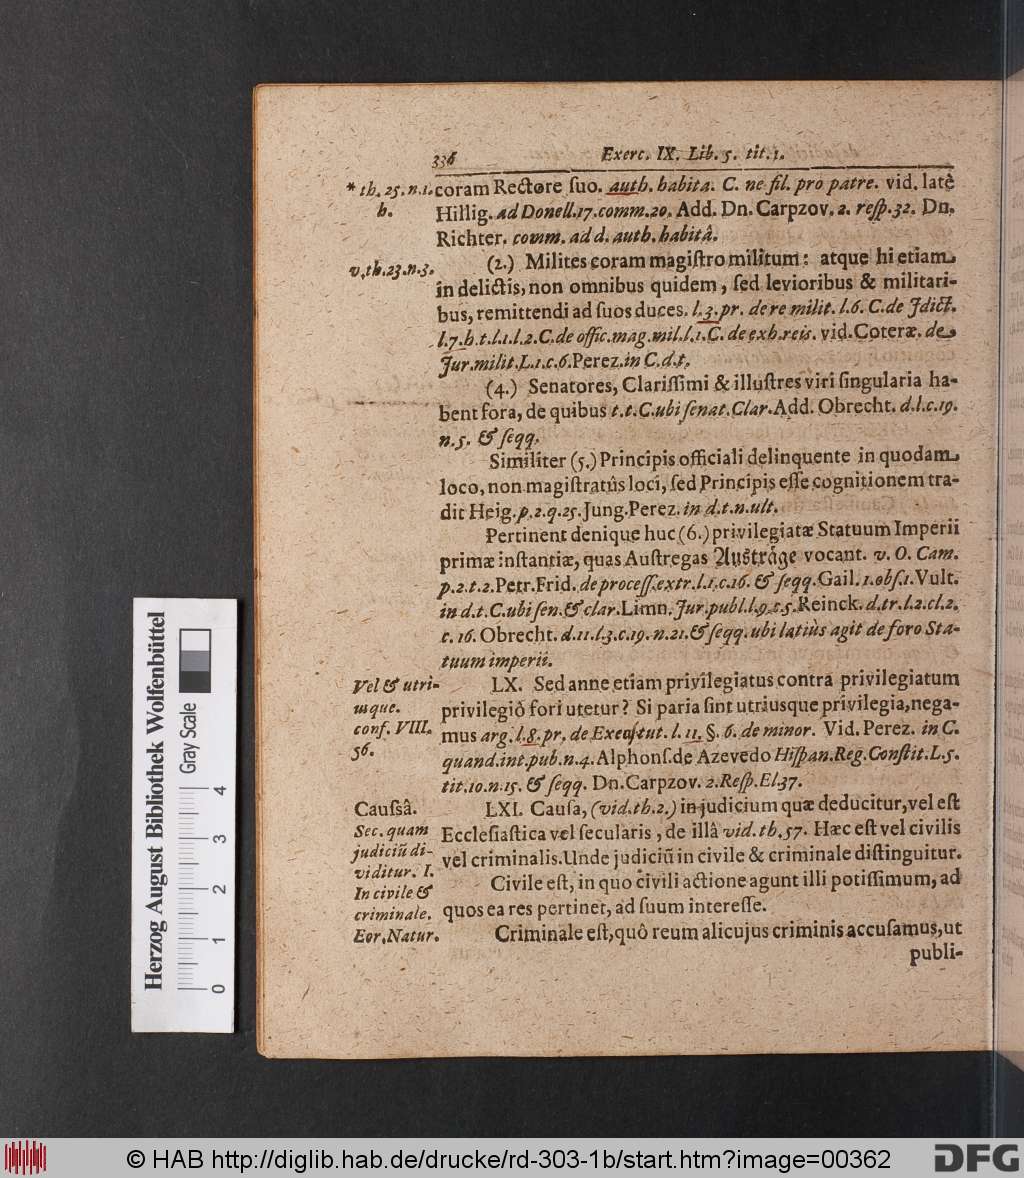 336 Exerc. IX. Lib. 5. tit. 1.
* th. 25. n. 1.
h.
coram Rectore ſuo. auth. habita. C. ne fil. pro patre. vid. latè
Hillig. ad Donell. 17. comm. 20. Add. Dn. Carpzov. 2. reſp. 32. Dn.
Richter. comm. ad d. auth. habitâ.
v. th. 23. n. 3.
(2.) Milites coram magiſtro militum: atque hi etiam
in delictis, non omnibus quidem, ſed levioribus & militari-
bus, remittendi ad ſuos duces. l. 3. pr. de re milit. l. 6. C. de Jdict.
l. 7. h. t. l. 1. l. 2. C. de offic. mag. mil. l. 1. C. de exh. reis. vid. Coteræ. de
Jur. milit. L. 1. c. 6. Perez. in C. d. t.
(4.) Senatores, Clariſſimi & illuſtres viri ſingularia ha-
bent fora, de quibus t. t. C. ubi ſenat. Clar. Add. Obrecht. d. l. c. 19.
n. 5. & ſeqq.
Similiter (5.) Principis officiali delinquente in quodam
loco, non magiſtratûs loci, ſed Principis eſſe cognitionem tra-
dit Heig. p. 2. q. 25. Jung. Perez. in d. t. n. ult.
Pertinent denique huc (6.) privilegiatæ Statuum Imperii
primæ inſtantiæ, quas Auſtregas Auſträge vocant. v. O. Cam.
p. 2. t. 2. Petr. Frid. de proceſſ. extr. l. 1. c. 16. & ſeqq. Gail. 1. obſ. 1. Vult.
in d. t. C. ubi ſen. & clar. Limn. Jur. publ. l. 9. t. 5. Reinck. d. tr. l. 2. cl. 2.
c. 16. Obrecht. d. 11. l. 3. c. 19. n. 21. & ſeqq. ubi latiùs agit de foro Sta-
tuum imperii.
Vel & utri-
usque.
conf. VIII.
56.
LX. Sed anne etiam privilegiatus contra privilegiatum
privilegiô fori utetur? Si paria ſint utriusque privilegia, nega-
mus arg. l. 8. pr. de Excuſ. tut. l. 11. §. 6. de minor. Vid. Perez. in C.
quand. int. pub. n. 4. Alphonſ. de Azevedo Hiſpan. Reg. Conſtit. L. 5.
tit. 10. n. 15. & ſeqq. Dn. Carpzov. 2. Reſp. El. 37.
Cauſsâ.
Sec. quam
judiciũ di-
viditur. I.
In civile &
criminale.
Eor. Natur.
LXI. Cauſa, (vid. th. 2.) in judicium quæ deducitur, vel eſt
Eccleſiaſtica vel ſecularis, de illâ vid. th. 57. Hæc eſt vel civilis
vel criminalis. Unde judiciũ in civile & criminale diſtinguitur.
Civile eſt, in quo civili actione agunt illi potiſſimum, ad
quos ea res pertinet, ad ſuum intereſſe.
Criminale eſt, quô reum alicujus criminis accuſamus, ut
publi-
Herzog August Bibliothek Wolfenbüttel
Gray Scale
0 1 2 3 4
© HAB http://diglib.hab.de/drucke/rd-303-1b/start.htm?image=00362
DFG